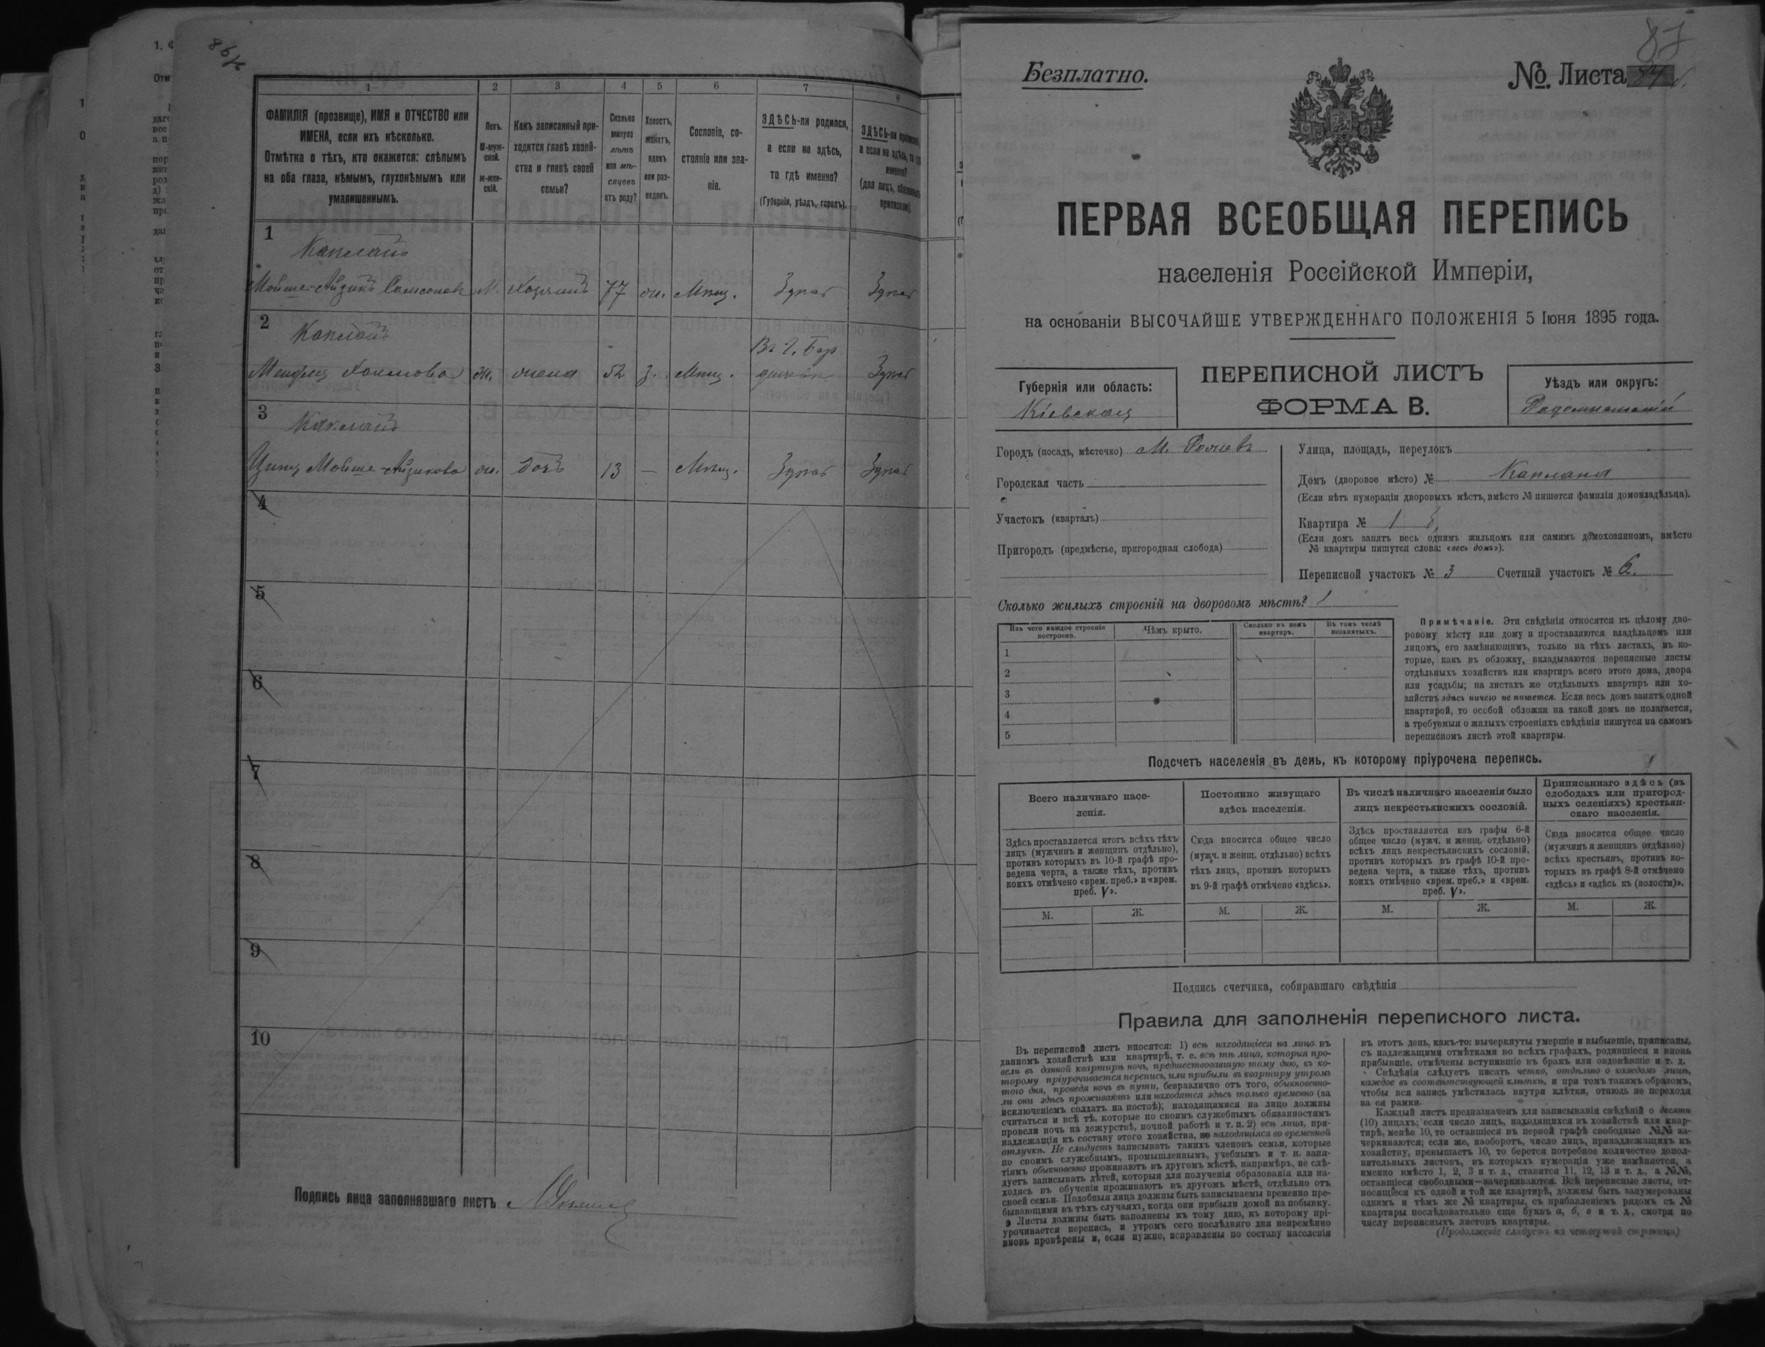 1 2 3 4 5 6 7
ФАМИЛІЯ (прозвище), ИМЯ и ОТЧЕСТВО или
ИМЕНА, если ихъ нѣсколько.
Отмѣтка о тѣхъ, кто окажется: слѣпымъ
на оба глаза, нѣмымъ, глухонѣмымъ или
умалишеннымъ.
Полъ.
М-муж-
ской.
ж-жен-
скій.
Какъ записанный при-
ходится главѣ хозяй-
ства и главѣ своей
семьи?
Сколько
минуло
лѣтъ
или мѣ-
сяцевъ
отъ роду?
Холостъ,
женатъ,
вдовъ
или раз-
веденъ.
Сословіе, со-
стояніе или зва-
ніе.
ЗДѢСЬ-ли родился,
а если не здѣсь,
то гдѣ именно?
(Губернія, уѣздъ, городъ).
1
Капланъ
Мойше-Айзикъ Самсоновъ М. Хозяинъ 77 ж. Мѣщ. Здѣсь Здѣсь
2
Капланъ
ж. жена 52 з. Мѣщ. Здѣсь
3
Капланъ
Мойше-Айзикова ж. Дочь 13 — Мѣщ. Здѣсь Здѣсь
4
5
6
7
8
9
10
Подпись лица заполнявшаго листъ
87
Безплатно.
№ Листа
ПЕРВАЯ ВСЕОБЩАЯ ПЕРЕПИСЬ
населенія Россійской Имперіи,
на основаніи ВЫСОЧАЙШЕ УТВЕРЖДЕННАГО ПОЛОЖЕНІЯ 5 Іюня 1895 года.
Губернія или область:
Кіевская
ПЕРЕПИСНОЙ ЛИСТЪ
ФОРМА В.
Уѣздъ или округъ:
Радомысльскій
Городъ (посадъ, мѣстечко) М.
Городская часть
Участокъ (кварталъ)
Пригородъ (предмѣстье, пригородная слобода)
Улица, площадь, переулокъ
Домъ (дворовое мѣсто) № Каплана
(Если нѣтъ нумераціи дворовыхъ мѣстъ, вмѣсто № пишется фамилія домовладѣльца).
Квартира № 1
(Если домъ занятъ весь однимъ жильцомъ или самимъ домохозяиномъ, вмѣсто
№ квартиры пишутся слова: «весь домъ»).
Переписной участокъ № 3 Счетный участокъ № 6.
Сколько жилыхъ строеній на дворовомъ мѣстѣ? 1
Изъ чего каждое строеніе
построено.
Чѣмъ крыто.
Сколько въ немъ
квартиръ.
Въ томъ числѣ
незанятыхъ.
1
2
3
4
5
Примѣчаніе. Эти свѣдѣнія относятся къ цѣлому дво-
ровому мѣсту или дому и проставляются владѣльцемъ или
лицомъ, его замѣняющимъ, только на тѣхъ листахъ, въ ко-
торые, какъ въ обложку, вкладываются переписные листы
отдѣльныхъ хозяйствъ или квартиръ всего этого дома, двора
или усадьбы; на листахъ же отдѣльныхъ квартиръ или хо-
зяйствъ здѣсь ничего не пишется. Если весь домъ занятъ одной
квартирой, то особой обложки на такой домъ не полагается,
а требуемыя о жилыхъ строеніяхъ свѣдѣнія пишутся на самомъ
переписномъ листѣ этой квартиры.
Подсчетъ населенія въ день, къ которому пріурочена перепись.
Всего наличнаго насе-
ленія.
Здѣсь проставляется итогъ всѣхъ тѣхъ
лицъ (мужчинъ и женщинъ отдѣльно),
противъ которыхъ въ 10-й графѣ про-
ведена черта, а также тѣхъ, противъ
коихъ отмѣчено «врем. преб.» и «врем.
преб. V».
Постоянно живущаго
здѣсь населенія.
Сюда вносится общее число
(мужч. и женщ. отдѣльно) всѣхъ
тѣхъ лицъ, противъ которыхъ
въ 9-й графѣ отмѣчено «здѣсь».
Въ числѣ наличнаго населенія было
лицъ некрестьянскихъ сословій.
Здѣсь проставляется изъ графы 6-й
общее число (мужч. и женщ. отдѣльно)
всѣхъ лицъ некрестьянскихъ сословій,
противъ которыхъ въ графѣ 10-й про-
ведена черта, а также тѣхъ, противъ
коихъ отмѣчено «врем. преб.» и «врем.
преб. V».
Приписаннаго здѣсь (въ
слободахъ или пригород-
ныхъ селеніяхъ) крестьян-
скаго населенія.
Сюда вносится общее число
(мужчинъ и женщинъ отдѣльно)
всѣхъ крестьянъ, противъ ко-
торыхъ въ графѣ 8-й отмѣчено
«здѣсь» и «здѣсь къ (волости)».
М. Ж. М. Ж. М. Ж. М. Ж.
Подпись счетчика, собиравшаго свѣдѣнія
Правила для заполненія переписного листа.
Въ переписной листъ вносятся: 1) всѣ находящіеся на лицо въ
данномъ хозяйствѣ или квартирѣ, т. е. всѣ тѣ лица, которыя про-
вели въ данной квартирѣ ночь, предшествовавшую тому дню, къ ко-
торому пріурочивается перепись, или прибыли въ квартиру утромъ
того дня, проведя ночь въ пути, безразлично отъ того, обыкновенно-
ли они здѣсь проживаютъ или находятся здѣсь только временно (за
исключеніемъ солдатъ на постоѣ); находящимися на лицо должны
считаться и всѣ тѣ, которые по своимъ служебнымъ обязанностямъ
провели ночь на дежурствѣ, ночной работѣ и т. п. 2) всѣ лица, при-
надлежащія къ составу этого хозяйства, но находящіяся во временной
отлучкѣ. Не слѣдуетъ записывать такихъ членовъ семьи, которые
по своимъ служебнымъ, промышленнымъ, учебнымъ и т. п. заня-
тіямъ обыкновенно проживаютъ въ другомъ мѣстѣ, напримѣръ, не слѣ-
дуетъ записывать дѣтей, которыя для полученія образованія или на-
ходясь въ обученіи проживаютъ въ другомъ мѣстѣ, отдѣльно отъ
своей семьи. Подобныя лица должны быть записываемы временно пре-
бывающими въ тѣхъ случаяхъ, когда они прибыли домой на побывку.
Листы должны быть заполнены къ тому дню, къ которому прі-
урочивается перепись, и утромъ сего послѣдняго дня непремѣнно
вновь провѣрены и, если нужно, исправлены по составу населенія
въ этотъ день, какъ-то: вычеркнуты умершіе и выбывшіе, приписаны,
съ надлежащими отмѣтками во всѣхъ графахъ, родившіеся и вновь
прибывшіе, отмѣчены вступившіе въ бракъ или овдовѣвшіе и т. д.
Свѣдѣнія слѣдуетъ писать четко, отдѣльно о каждомъ лицѣ,
каждое въ соотвѣтствующей клѣткѣ, и при томъ такимъ образомъ,
чтобы вся запись умѣстилась внутри клѣтки, отнюдь не переходя
за ея рамки.
Каждый листъ предназначенъ для записыванія свѣдѣній о десяти
(10) лицахъ; если число лицъ, находящихся въ хозяйствѣ или квар-
тирѣ, менѣе 10, то оставшіеся въ первой графѣ свободные №№ за-
черкиваются; если же, наоборотъ, число лицъ, принадлежащихъ къ
хозяйству, превышаетъ 10, то берется потребное количество допол-
нительныхъ листовъ, въ которыхъ нумерація уже измѣняется, а
именно вмѣсто 1, 2, 3 и т. д., ставится 11, 12, 13 и т. д., а №№,
оставшіеся свободными—зачеркиваются. Всѣ переписные листы, от-
носящіеся къ одной и той же квартирѣ, должны быть занумерованы
однимъ и тѣмъ же № квартиры, съ прибавленіемъ рядомъ съ №
квартиры послѣдовательно еще буквъ а, б, в и т. д., смотря по
числу переписныхъ листовъ квартиры.
(Продолженіе слѣдуетъ на четвертой страницѣ)